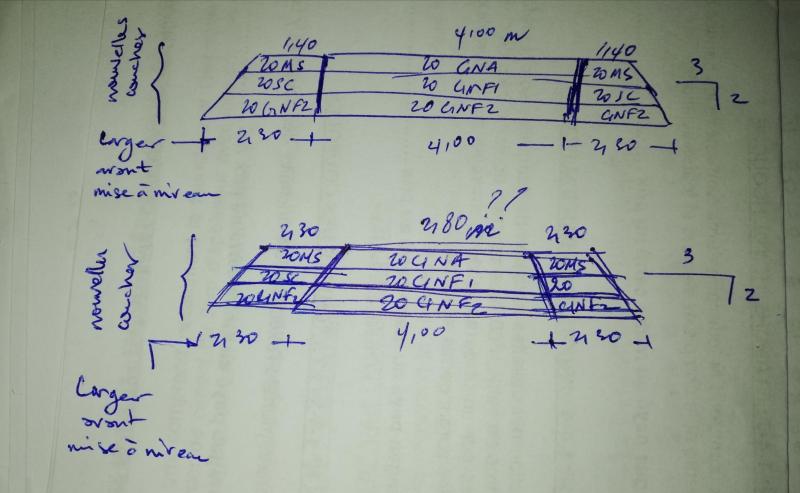 nouvelles
couches
1,40 4,00 m 1,40
20MS 20 GNA 20MS
20SC 20 GNF1 20SC
20GNF2 20 GNF2 GNF2
3
2
Largeur
avant
mise à niveau
2,30 4,00 2,30
??
2,30 2,80 2,30
nouvelles
couches
20MS 20GNA 20MS
20SC 20GNF1 20
20GNF2 20GNF2 GNF2
3
2
2,30 4,00 2,30
Largeur
avant
mise à niveau